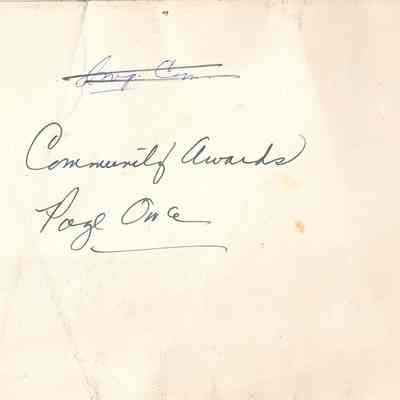 Community Awards
Page One